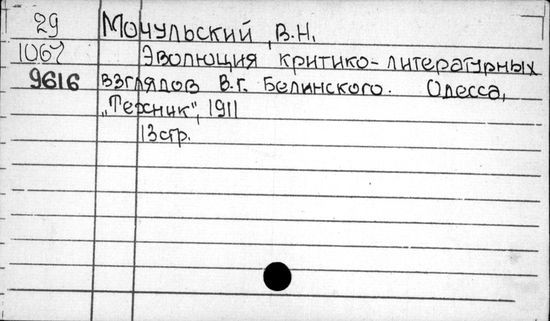 29 Мочульский, В.Н.
1067 Эволюция критико-литературных
9616 взглядов В.Г. Белинского. Одесса,
„Техник", 1911
13стр.